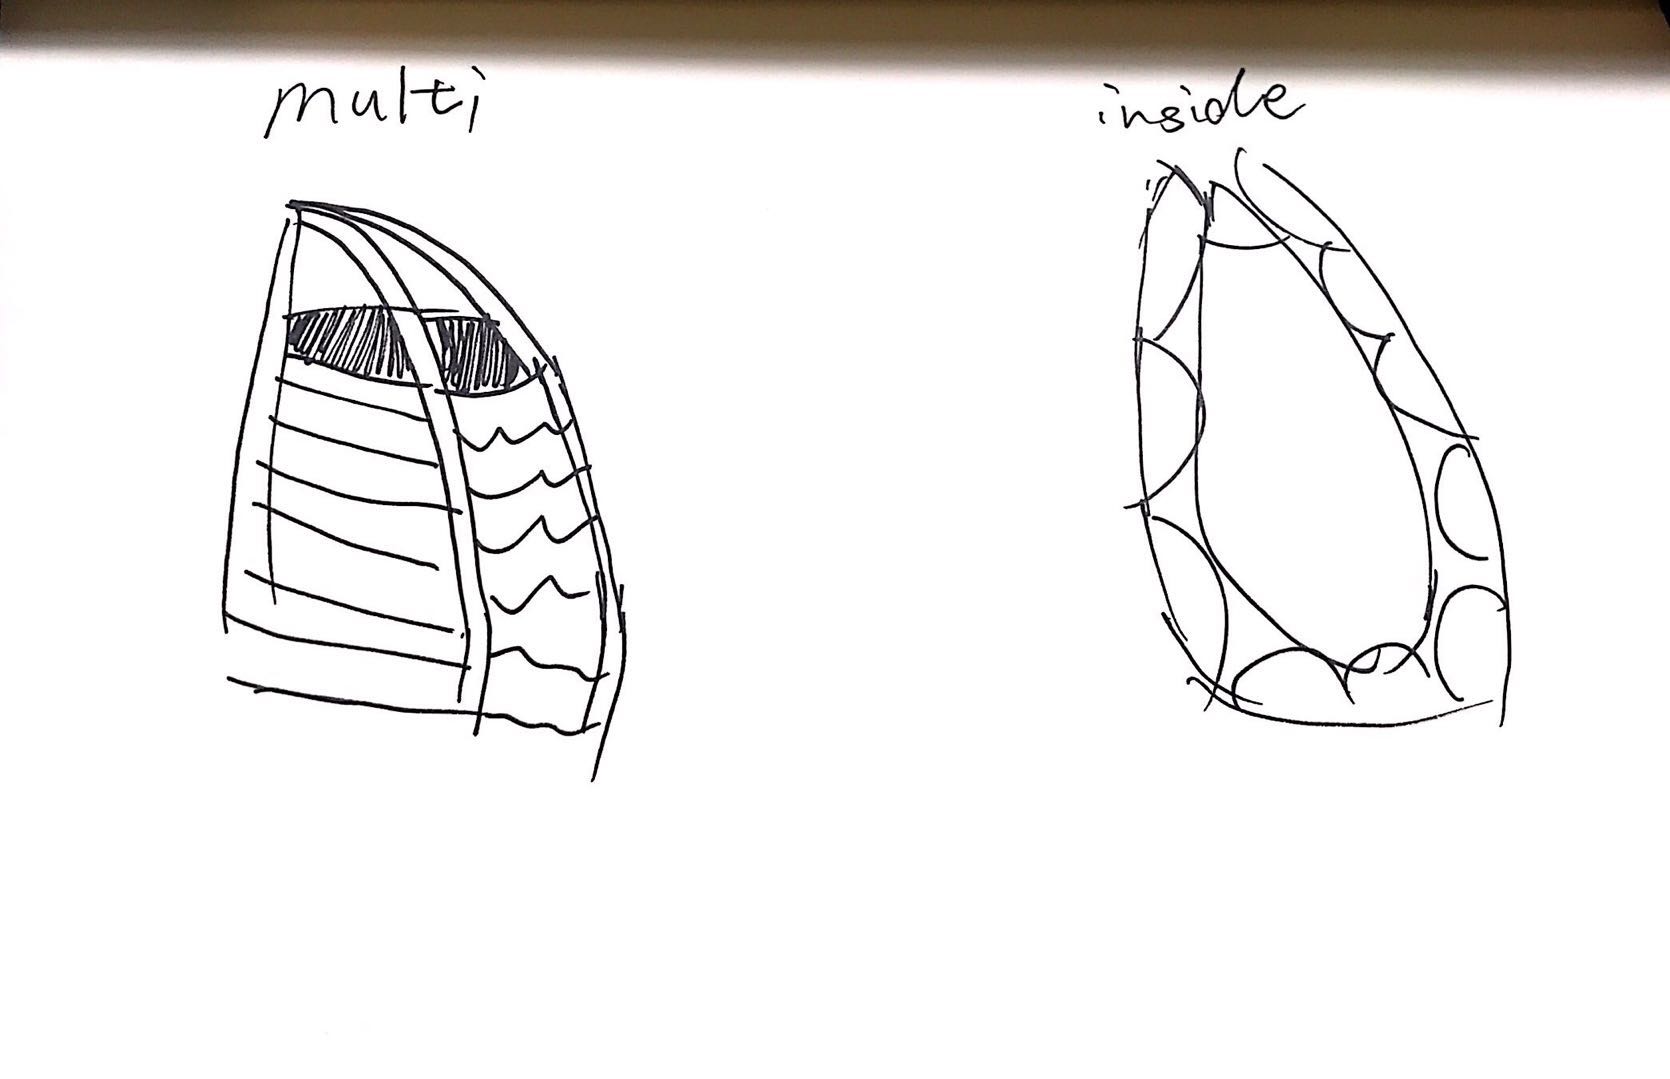 multi
inside